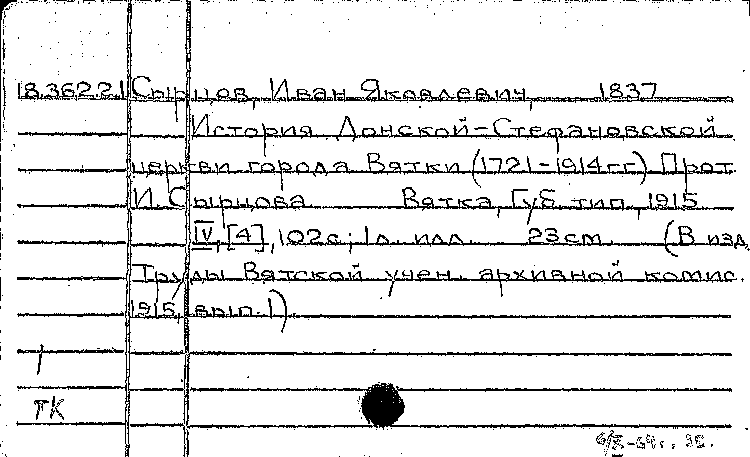 18.362.21 Сырцов, Иван Яковлевич, 1837
История Донской-Стефановской
церкви города Вятки (1721-1914гг) Прот.
И. Сырцова Вятка, Губ. тип., 1915
IV, [4], 102с; 1л. илл. 23см. (В изд.
Труды Вятской учен. архивной комис.
1915, вып. 1).
1
ТК